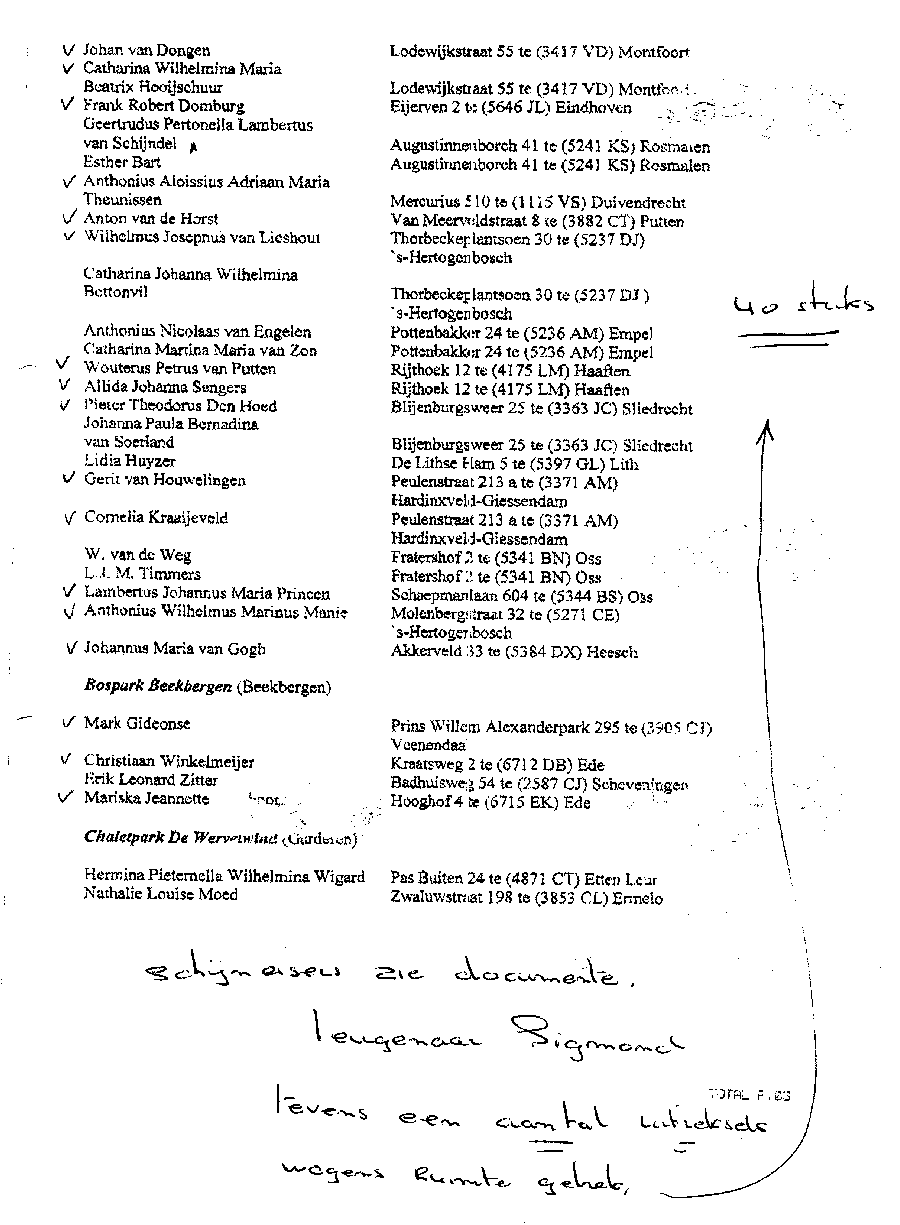 ✓ Johan van Dongen Lodewijkstraat 55 te (3417 VD) Montfoort
✓ Catharina Wilhelmina Maria
Beatrix Hooijschuur Lodewijkstraat 55 te (3417 VD) Montfoort
✓ Frank Robert Domburg Eijerven 2 te (5646 JL) Eindhoven
Geertrudus Pertonella Lambertus
van Schijndel Augustinnenborch 41 te (5241 KS) Rosmalen
Esther Bart Augustinnenborch 41 te (5241 KS) Rosmalen
✓ Anthonius Aloissius Adriaan Maria
Theunissen Mercurius 510 te (1115 VS) Duivendrecht
✓ Anton van de Horst Van Meerveldstraat 8 te (3882 CT) Putten
✓ Wilhelmus Josephus van Lieshout Thorbeckeplantsoen 30 te (5237 DJ)
's-Hertogenbosch
Catharina Johanna Wilhelmina
Bettonvil Thorbeckeplantsoen 30 te (5237 DJ )
's-Hertogenbosch
40 stuks
Anthonius Nicolaas van Engelen Pottenbakker 24 te (5236 AM) Empel
Catharina Martina Maria van Zon Pottenbakker 24 te (5236 AM) Empel
✓ Wouterus Petrus van Putten Rijthoek 12 te (4175 LM) Haaften
✓ Allida Johanna Sengers Rijthoek 12 te (4175 LM) Haaften
✓ Pieter Theodorus Den Hoed Blijenburgsweer 25 te (3363 JC) Sliedrecht
Johanna Paula Bernadina
van Soerland Blijenburgsweer 25 te (3363 JC) Sliedrecht
Lidia Huyzer De Lithse Ham 5 te (5397 GL) Lith
✓ Gerit van Houwelingen Peulenstraat 213 a te (3371 AM)
Hardinxveld-Giessendam
✓ Cornelia Kraaijeveld Peulenstraat 213 a te (3371 AM)
Hardinxveld-Giessendam
W. van de Weg Fratershof 2 te (5341 BN) Oss
L.J. M. Timmers Fratershof 2 te (5341 BN) Oss
✓ Lambertus Johannus Maria Princen Schaepmanlaan 604 te (5344 BS) Oss
✓ Anthonius Wilhelmus Marinus Manie Molenbergstraat 32 te (5271 CE)
's-Hertogenbosch
✓ Johannus Maria van Gogh Akkerveld 33 te (5384 DX) Heesch
Bospark Beekbergen (Beekbergen)
✓ Mark Gideonse Prins Willem Alexanderpark 295 te (3905 CJ)
Veenendaal
✓ Christiaan Winkelmeijer Kraatsweg 2 te (6712 DB) Ede
Erik Leonard Zitter Badhuisweg 54 te (2587 CJ) Scheveningen
✓ Mariska Jeannette Hooghof 4 te (6715 EK) Ede
Chaletpark De Wervelwind (Garderen)
Hermina Pieternella Wilhelmina Wigard Pas Buiten 24 te (4871 CT) Etten Leur
Nathalie Louise Moed Zwaluwstraat 198 te (3853 CL) Ermelo
schijneisers zie documente.
leugenaar Sigmond
TOTAL P.03
tevens een aantal uitreksels
wegens Ruimte gebrek,